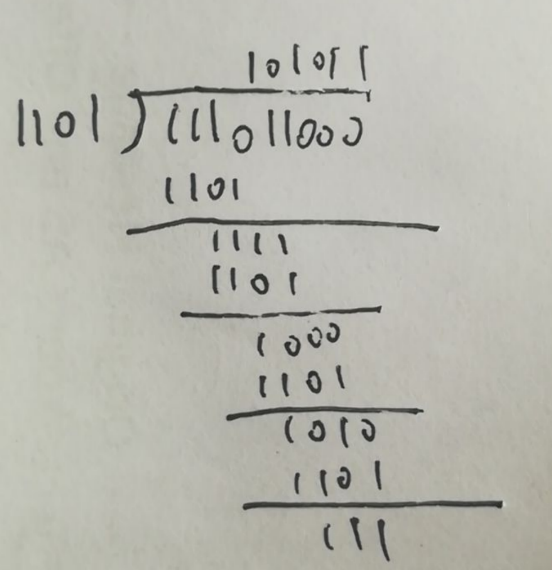 101011
1101)111011000
1101
1111
1101
1000
1101
1010
1101
111